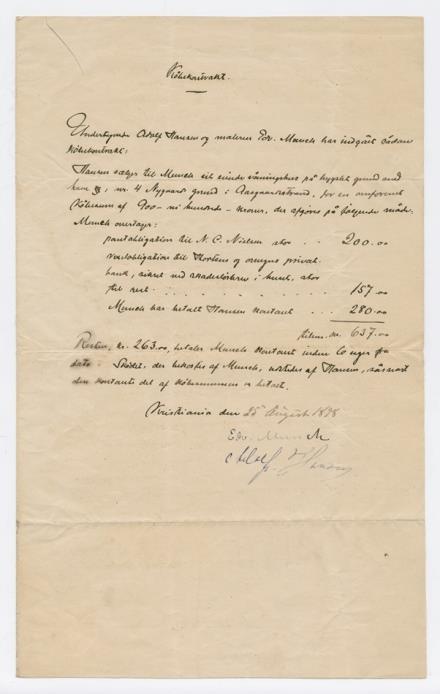 Kjöbekontrakt.
Undertegnede Adolf Hansen og maleren Edv. Munch har indgåt sådan
Kjöbekontrakt:
Hansen sælger til Munch sit eiende våningshus på bygslet grund
nr. 4 Nygaards grund i Aasgaardstrand, for en omforenet
Kjöbesum af 900 – ni hundrede – kroner, der afgöres på fölgende måde.
Munch overtager:
pantobligation til N. C. Nielsen stor . . 200.00
obligation til Hortens og omegns privat-
bank, sikret ved skadeslösbrev i huset, stor
til rest . . . . . . . . . 157.00
Munch har betalt Hansen kontant . . . 280.00
tilsm. kr. 637.00
Resten, kr. 263.00, betaler Munch kontant inden 6 uger fra
dato. Sködet, der bekostes af Munch, udstedes af Hansen, såsnart
den kontante del af kjöbesummen er betalt.
Kristiania den 25 August 1898
Edv. Munch
Adolf Hansen